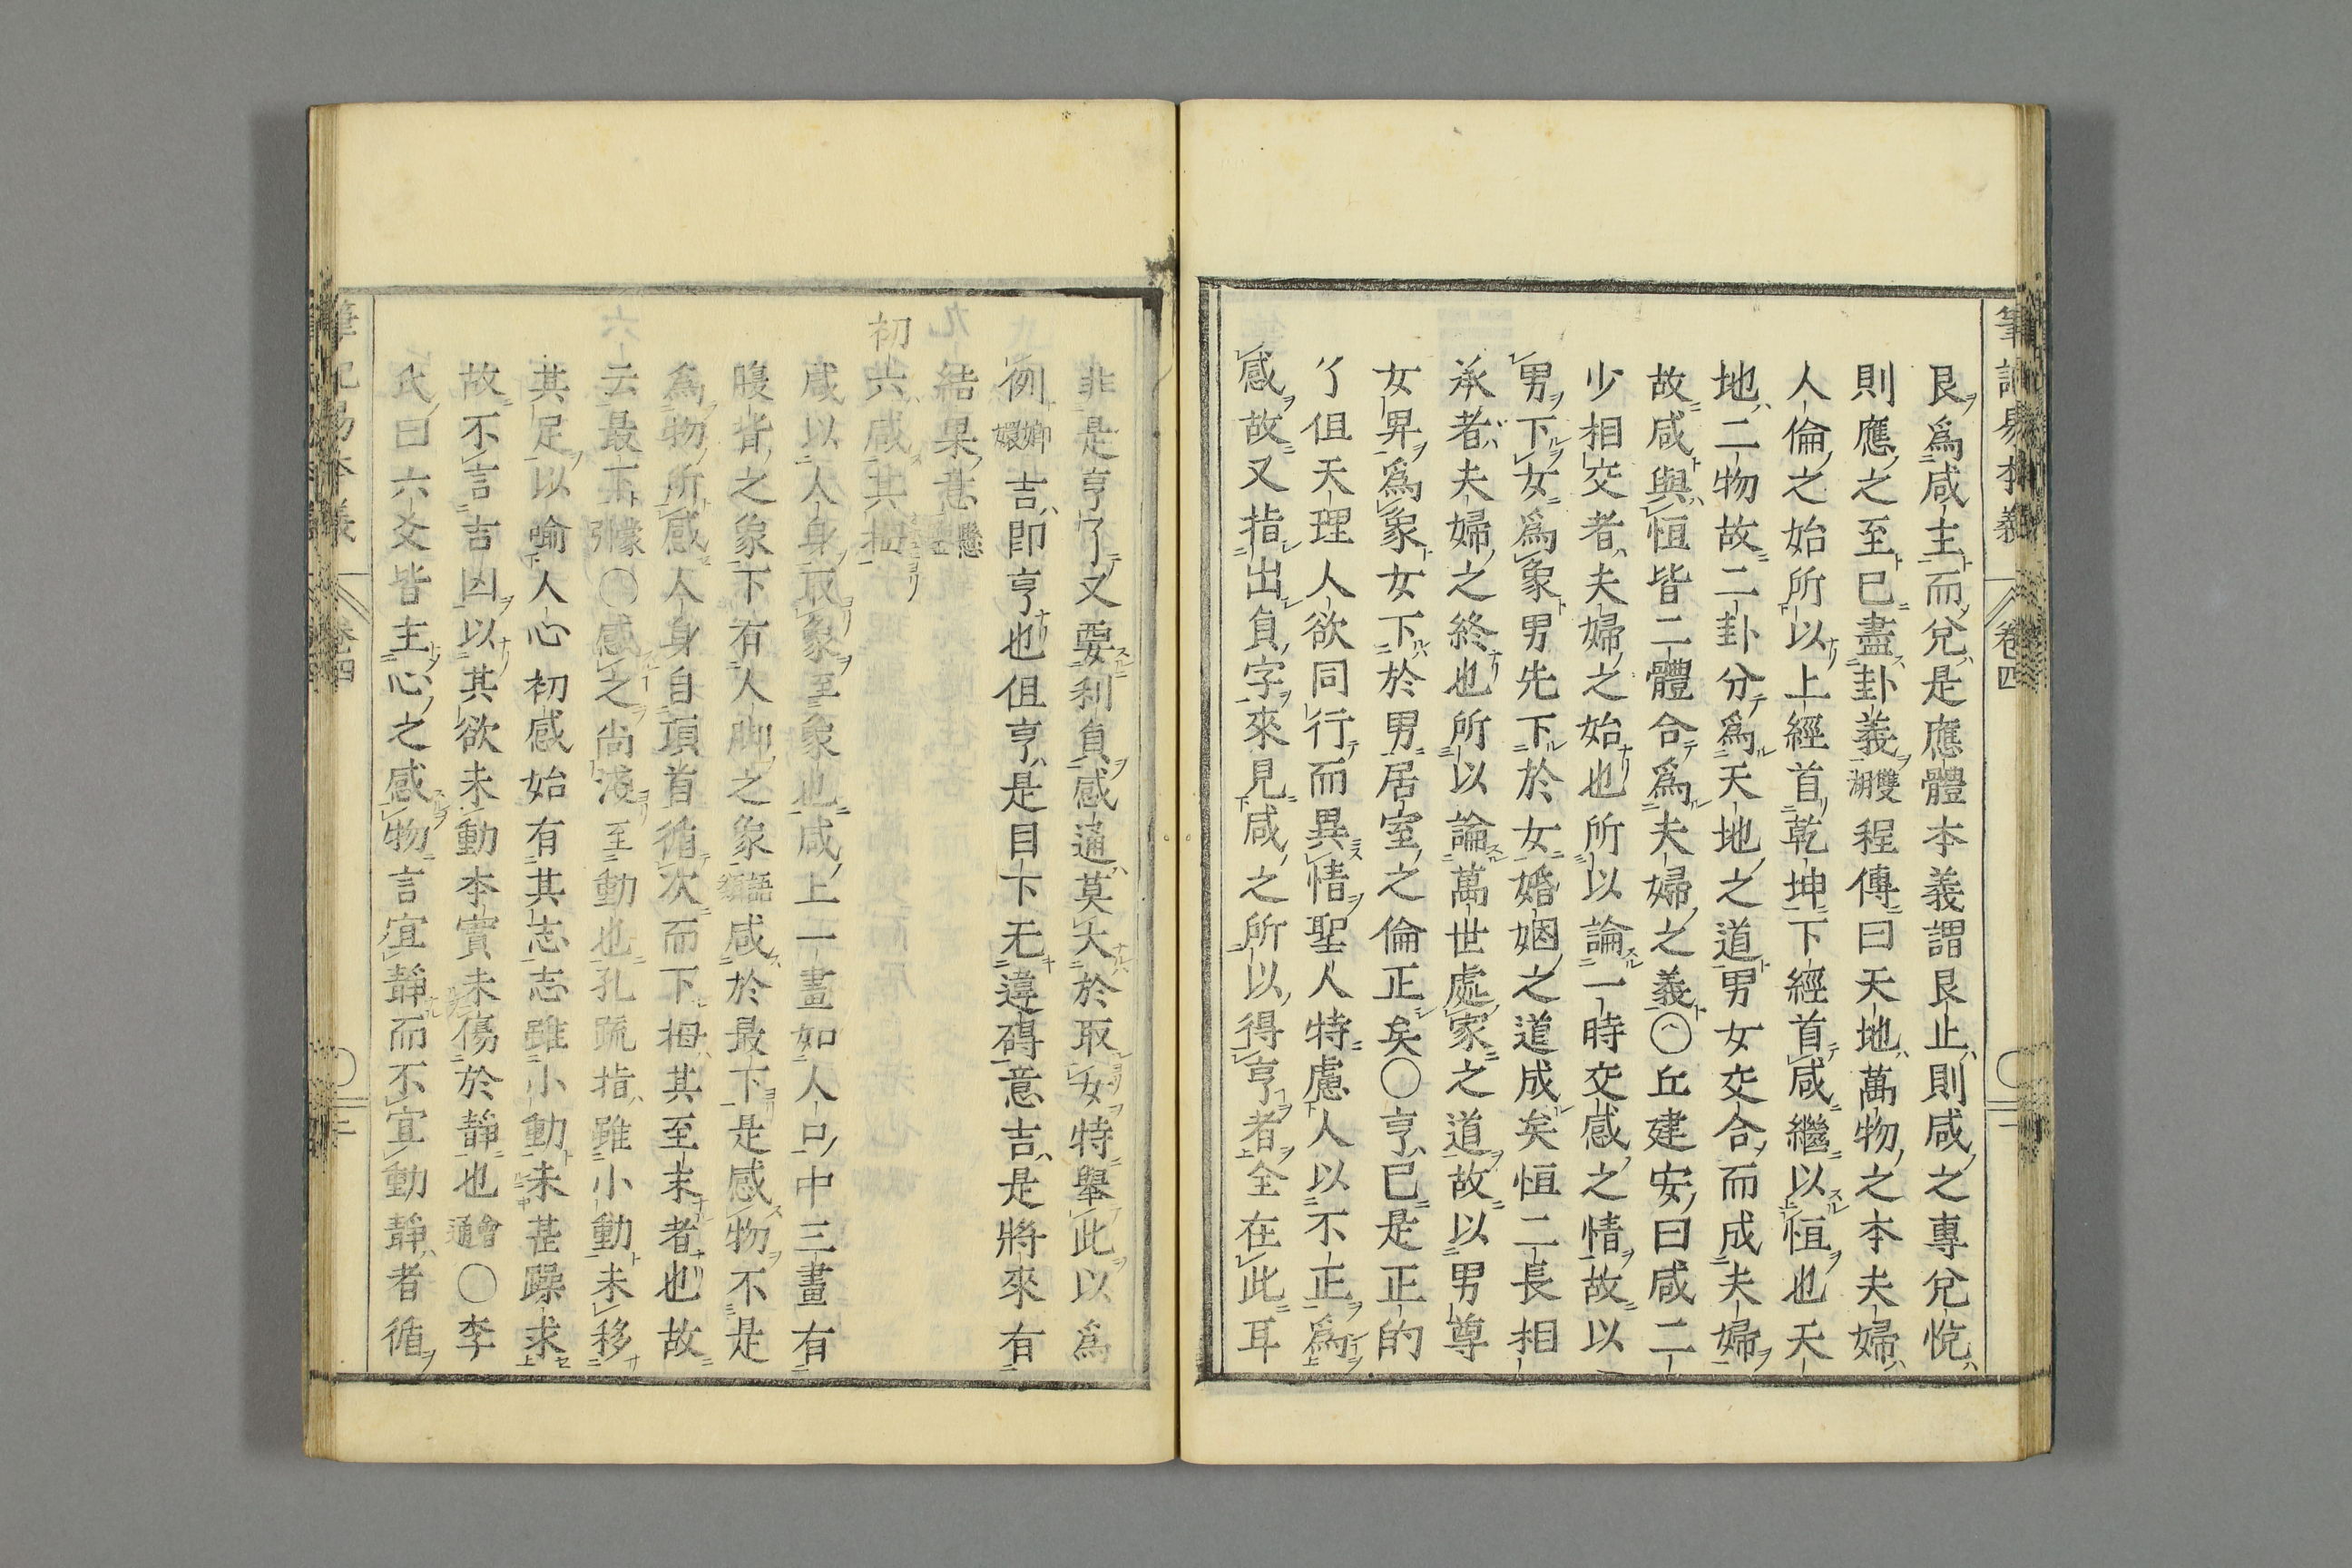 艮爲咸主而兌是應體本義謂艮止則咸之專兌悅
則應之至巳盡卦義雙湖程傳曰天地萬物之本夫婦
人倫之始所以上經首乾坤下經首咸繼以恒也天
地二物故二卦分爲天地之道男女交合而成夫婦
故咸與恒皆二體合爲夫婦之義〇丘建安曰咸二
少相交者夫婦之始也所以論一時交感之情故以
男下女爲象男先下於女婚姻之道成矣恒二長相
承者夫婦之終也所以論萬世處家之道故以男尊
女卑爲象女下於男居室之倫正矣〇亨巳是正的
了但天理人欲同行而異情聖人特慮人以不正爲
感故又指出貞字來見咸之所以得亨者全在此耳
非是亨了又要利貞感通莫大於取女特舉此以爲
例鄉嬛吉即亨也但亨是目下无違碍意吉是將來有
結果意
初六咸其拇
咸以人身取象至象也咸上一畫如人口中三畫有
腹背之象下有人脚之象語類咸於最下是感物不是
爲物所感人身自頂首循次而下拇其至末者也故
云最下引蒙〇感之尚淺至動也孔疏指雖小動未移
其足以喻人心初感始有其志志雖小動未甚躁求
故不言吉凶以其欲未動本實未傷於靜也會通〇李
氏曰六爻皆主心之感物言宜靜而不宜動靜者循
筆記易本義 卷四 〇二